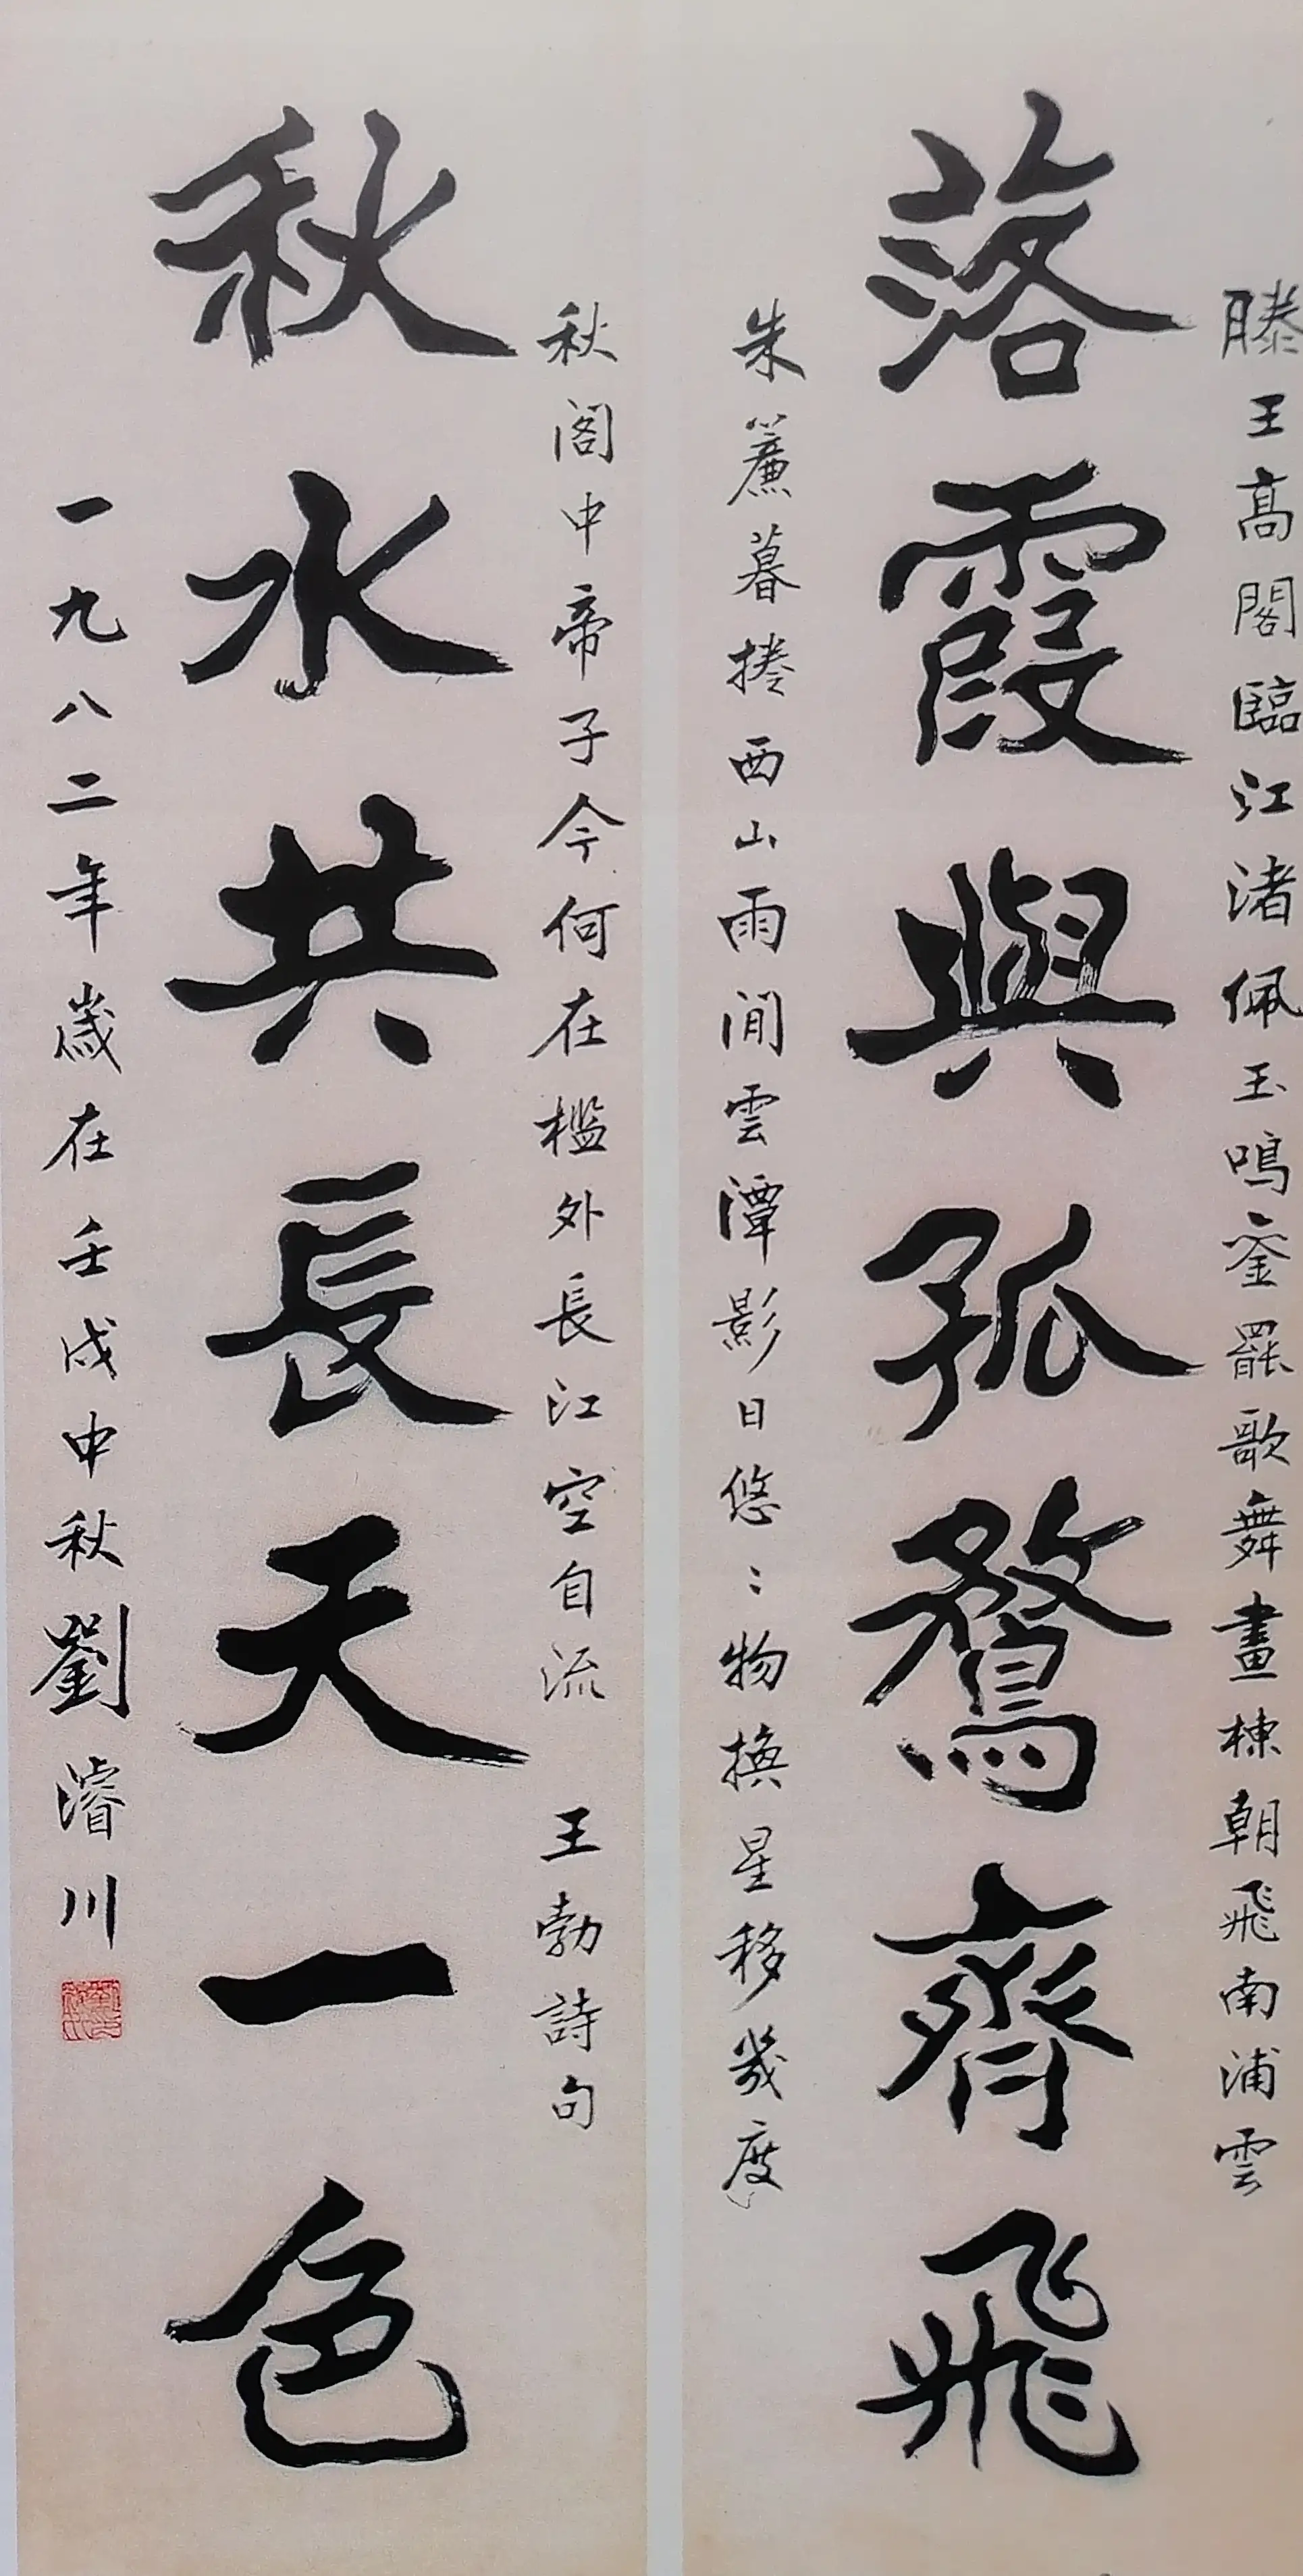 滕王高閣臨江渚佩玉鳴鑾罷歌舞畫棟朝飛南浦雲
落霞與孤鶩齊飛
朱簾暮捲西山雨閒雲潭影日悠〻物換星移幾度
秋閣中帝子今何在檻外長江空自流 王勃詩句
秋水共長天一色
一九八二年歲在壬戌中秋劉濬川